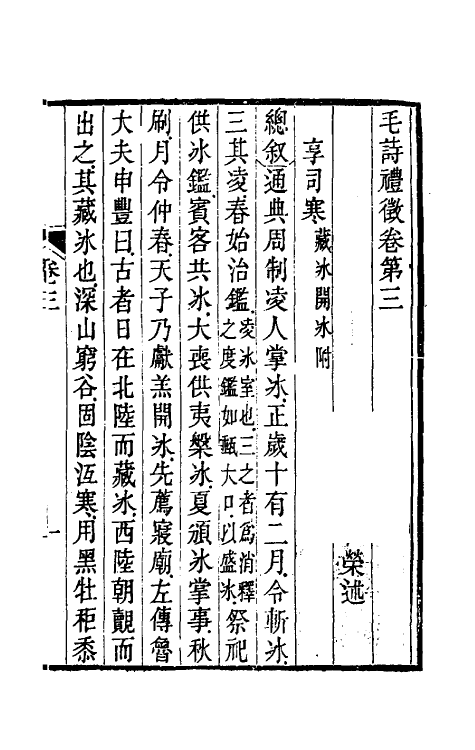 毛詩禮徵卷第三
榮述
享司寒藏冰開冰附
總叙通典周制凌人掌冰正歲十有二月令斬冰
三其凌春始治鑑凌冰室也三之者爲消釋之度鑑如甀大口以盛冰祭祀
供冰鑑賓客共冰大喪供夷槃冰夏頒冰掌事秋
刷月令仲春天子乃獻羔開冰先薦寢廟左傳魯
大夫申豐曰古者日在北陸而藏冰西陸朝覿而
出之其藏冰也深山窮谷固陰沍寒用黑牡秬黍
卷三
一